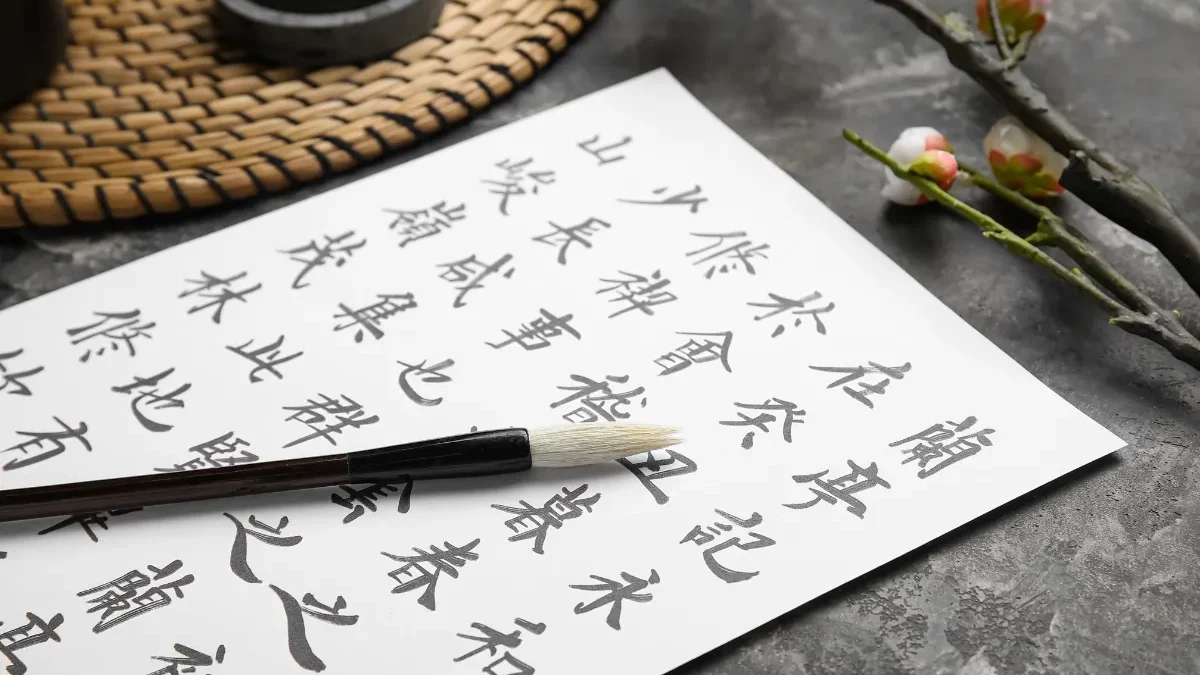 蘭亭記永和
在癸丑暮春之
於會稽陰之蘭
修禊事也群賢畢
少長咸集此地有
山峻嶺茂林修